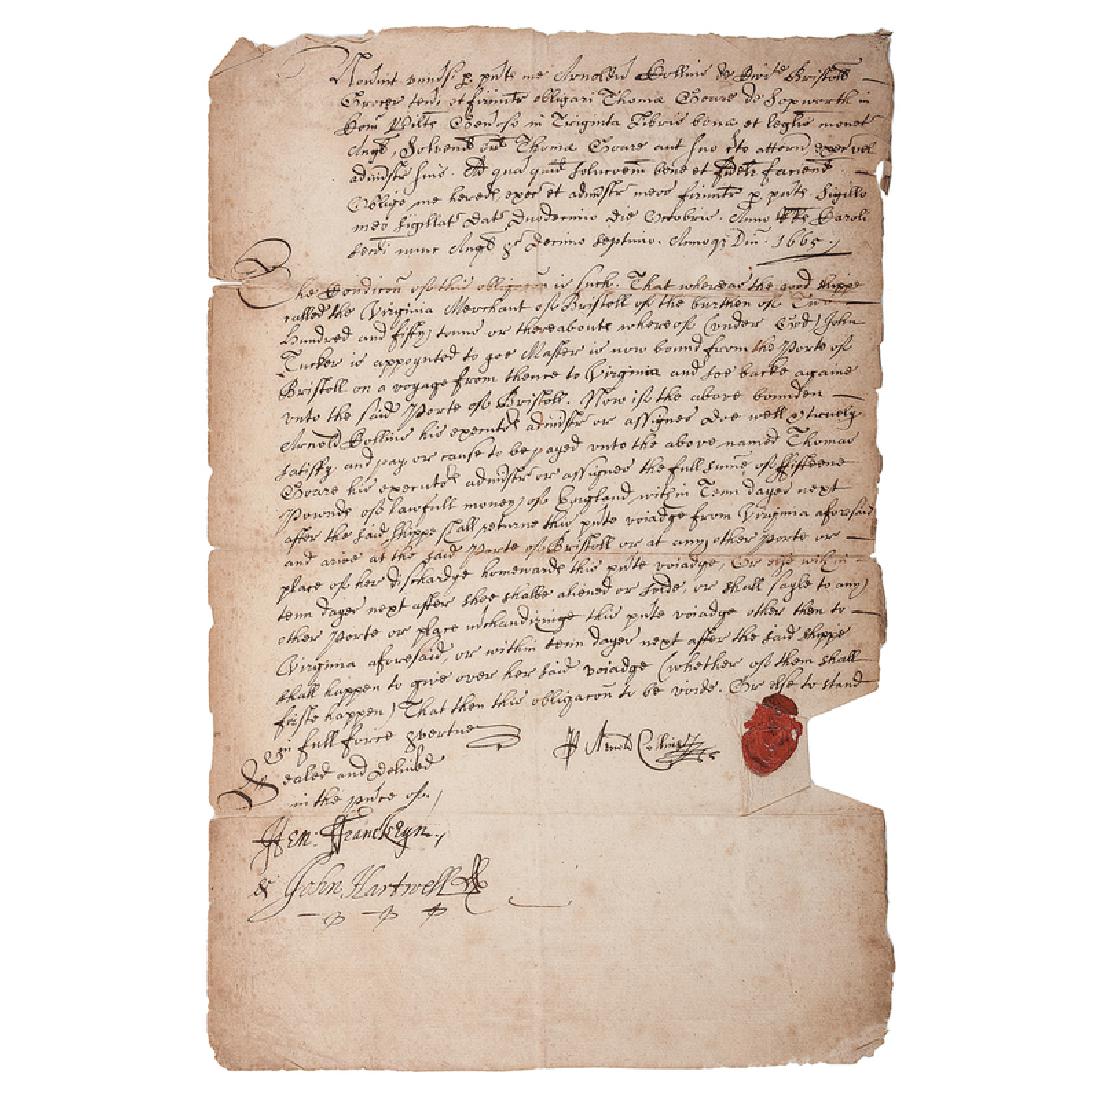 Noverint univsi p pnte me Arnoldu Collins de Civit Bristoll
Grocer teneri et firmit obligari Thoma Goare de Sopworth in
Com Wilts Generoso in Triginta Libris bone et legalis monet
Angl, Solvend eid Thoma Goare aut suo cto attorn, execr vel
adminstr suis. Ad qua quid solucoem bene et fideli faciend
Obligo me hered, execr et adminstr meos firmit p pnte Sigillo
meo sigillat Dat Duodecimo die Octobris. Anno Caroli
Scdi nunc Angl &c Decimo septimo. Annoq Dni. 1665
The Condicon of this obligacon is such. That whereas the good shippe
called the Virginia Merchant of Bristoll of the burthen of Two
Hundred and fifty tonns or thereabouts whereof (under God) John
Tucker is appoynted to goe Master is now bound from the Porte of
Bristoll on a voyage from thence to Virginia and soe backe againe
unto the said Porte of Bristoll. Now if the above bounden
Arnold Collins his executrs adminstr or assignes doe well & truely
satisfy and pay or cause to be payed unto the above named Thomas
Goare his executrs adminstr or assignes the full sume of ffifteene
Pownds of lawfull money of England within Tenn dayes next
after the said shippe shall returne this pnte voiadge from Virginia aforesaid
and arive at the said Porte of Bristoll or at any other Porte or
place of her dischardge homewards this pnte voiadge, Or else within
tenn dayes next after shee shalbe aliened or solde, or shall sayle to any
other Porte or place mchandizinge this pnte voiadge other then to
Virginia aforesaid, or within tenn dayes next after the said shippe
shall happen to give over her said voiadge (whether of them shall
firste happen) That then this obligacon to be voide. Or else to stand
in full force & vertue
Arnold Collins
Sealed and delived
in the pnce of,
Hen. Ffrancklyn,
& John Hartwell